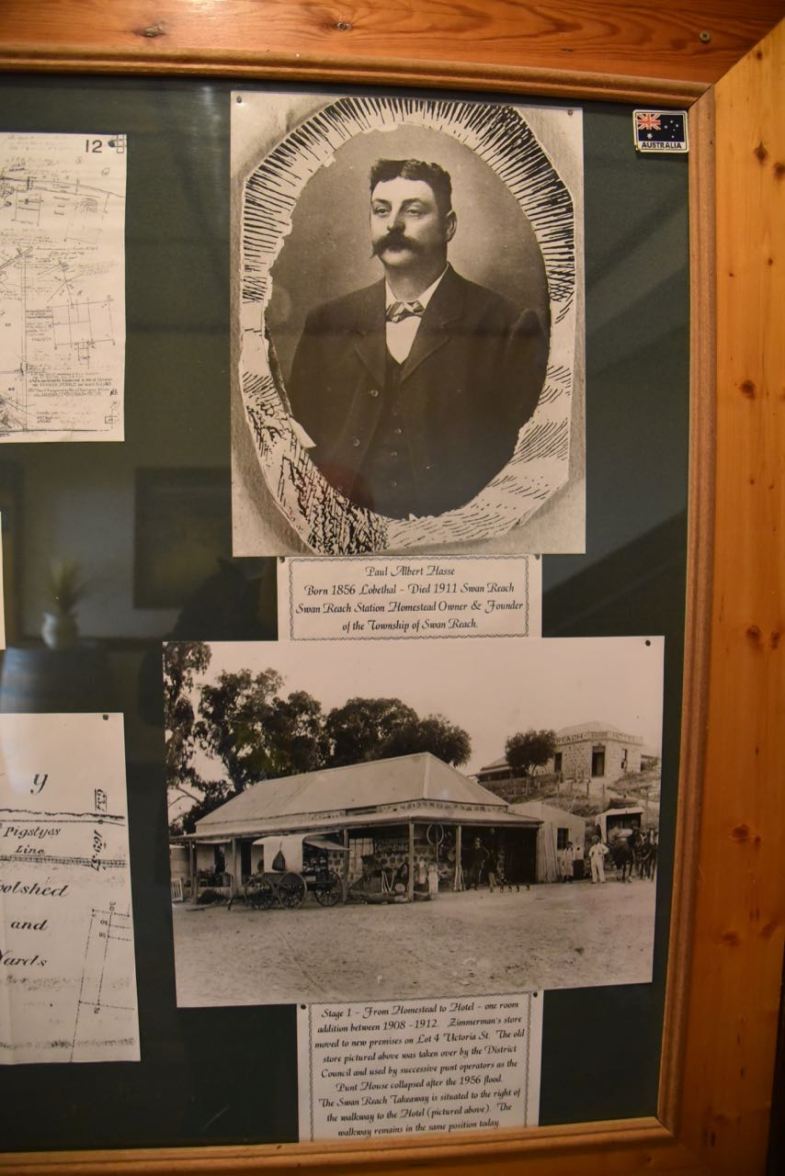 12
AUSTRALIA
Paul Albert Hasse
Born 1856 Lobethal - Died 1911 Swan Reach
Swan Reach Station Homestead Owner & Founder
of the Township of Swan Reach.
y
Pigstyes
Line
and
Yards
Stage 1 - From Homestead to Hotel - one room
addition between 1908 -1912. Zimmerman's store
moved to new premises on Lot 4 Victoria St. The old
store pictured above was taken over by the District
Council and used by successive punt operators as the
Punt House collapsed after the 1956 flood.
The Swan Reach Takeaway is situated to the right of
the walkway to the Hotel (pictured above). The
walkway remains in the same position today.